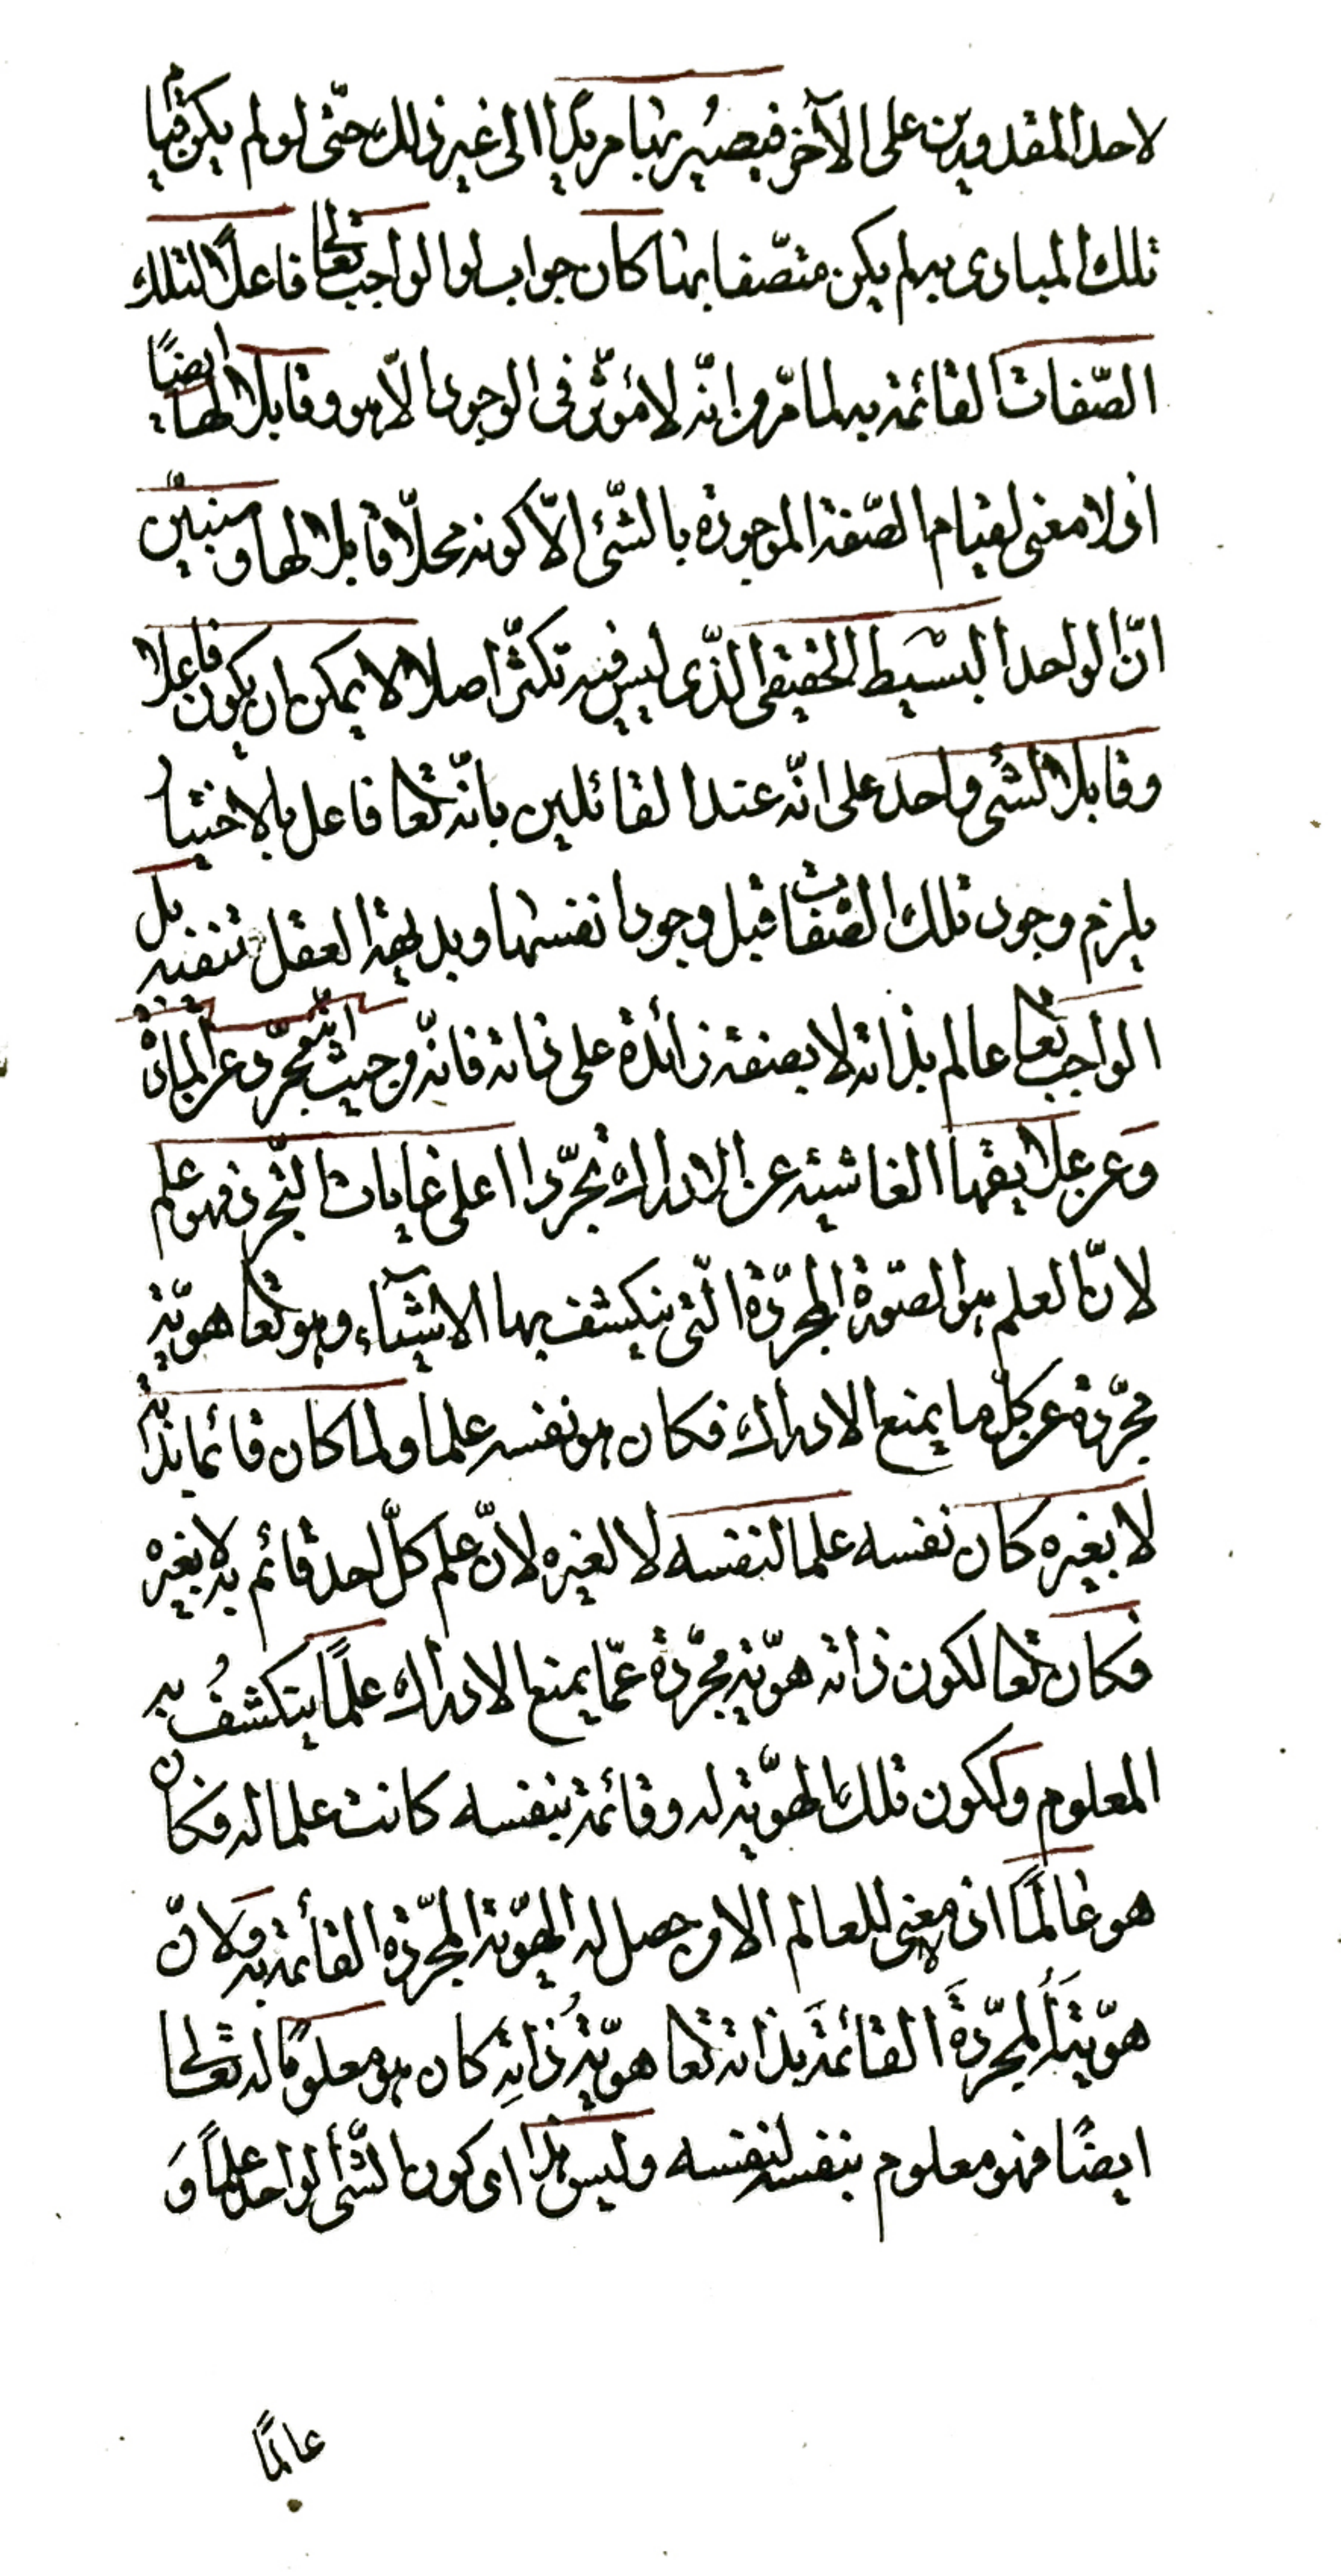 لاحد المقدورين على الآخر فيصير بها مريدا الى غير ذلك حتّى لو لم يكن قيام
تلك المبادى به لم يكن متصّفا بها كان جواب لو الواجب تعالى فاعلاً لتلك
الصّفات القائمة به لما مرّ من انّه لا مؤثّر فى الوجود الّا هو وقابلا لها ايضاً
اذ لا معنى لقيام الصّفة الموجودة بالشّئ الّا كونه محلّا قابلا لها وسنبيّن
انّ الواحد البسيط الحقيقى الذّى ليس فيه تكثّر اصلا لا يمكن ان يكون فاعلا
وقابلا لشئ واحد على انّه عند القائلين بانّه تعا فاعل بالاختيار
يلزم وجود تلك الصّفات قبل وجود انفسها وبديهة العقل تنفيه بل
الواجب تعا عالم بذاته لا بصفة زائدة على ذاته فانّه من حيث انّه مجرّد عن المادّة
وعن علايقها الغاشية عن الادراك تجرّدا اعلى غايات التّجرد فهو علم
لانّ العلم هو الصّورة المجرّدة الّتى ينكشف بها الاشيآء وهو تعا هويّة
مجرّدة عن كلّ ما يمنع الادراك فكان هو نفسه علما ولما كان قائما بذاته
لا بغيره كان نفسه علما لنفسه لا لغيره لانّ علم كلّ احد قائم به لا بغيره
فكان تعا لكون ذاته هويّة مجرّدة عمّا يمنع الادراك علماً يتكشفُ به
المعلوم ولكون تلك الهويّة له وقائمة بنفسه كانت علما له فكان
هو عالماً اذ لا معنى للعالم الا من حصل له الهويّة المجرّدة القائمة به ولانّ
هويّتهُ المجرّدةَ القائمةَ بذاته تعا هويّةُ ذاتِه كان هو معلوماً له تعالى
ايضًا فهو معلوم بنفسه لنفسه وليس هذا اى كون الشّئ الواحد علماً وَ
عالماً